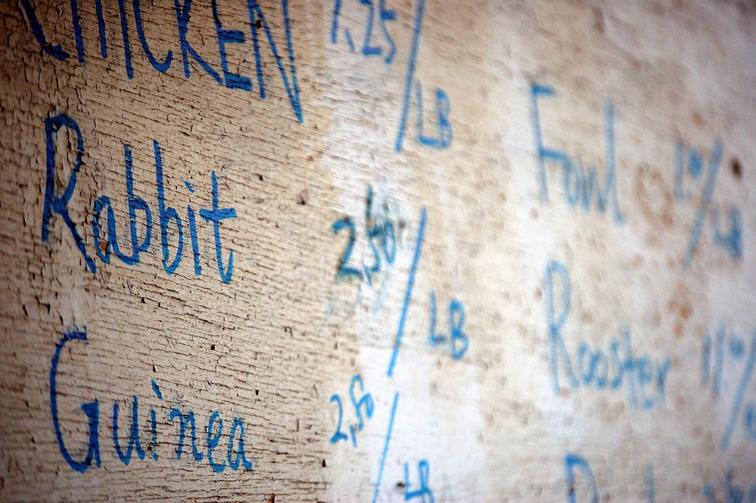 CHICKEN 1.25/LB
Rabbit 2,50/LB
Guinea 2,50/LB
Fowl
Rooster